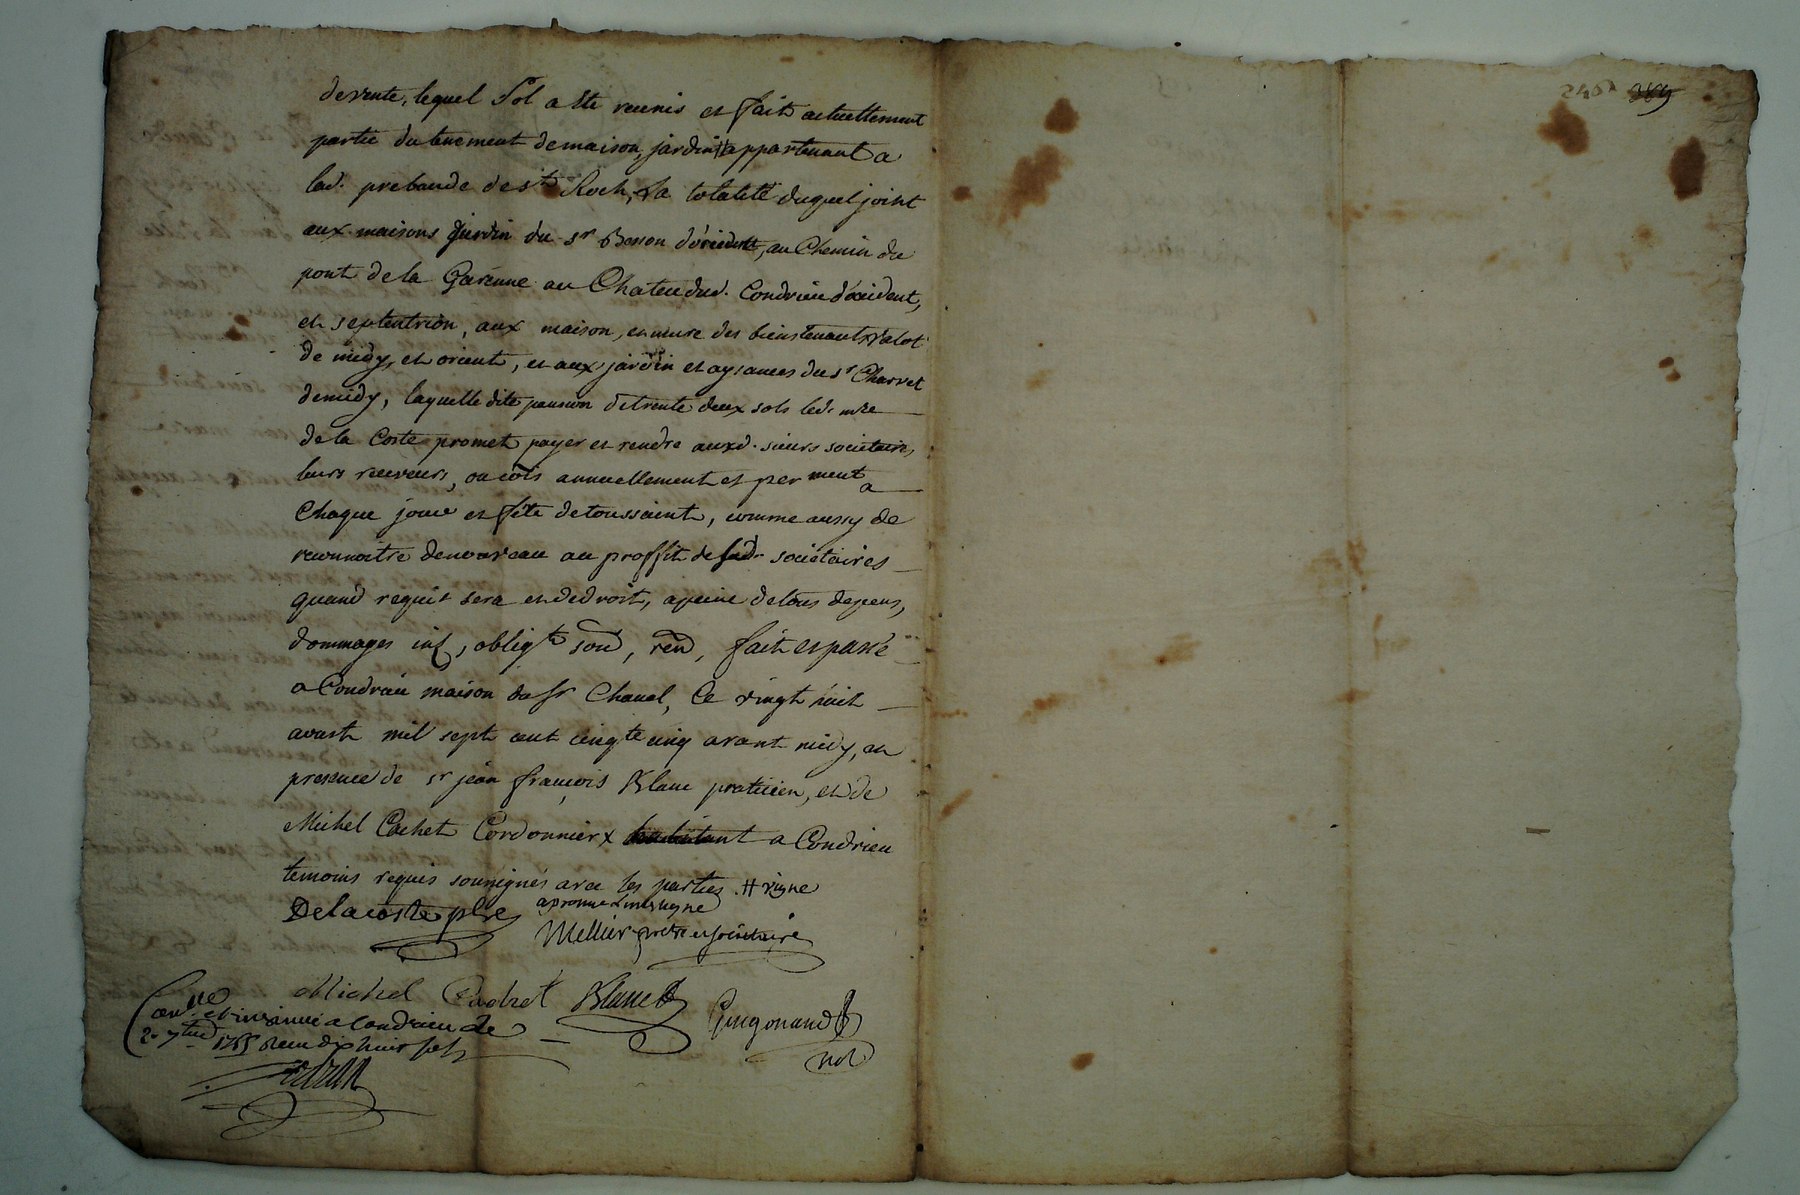 de vente, lequel sol a ete reunis et fait actuellement
partie du tenement de maison, jardin appartenant a
lad. prebande de st Roch, la totalité duquel joint
aux maisons jardin du sr Besson d'orient, au Chemin du
pont de la Garenne au Chateu dud. Condrieu d'occident,
et septentrion, aux maison, et mure des bienstenants Valot
de midy, et orient, et aux jardin et aysances du sr Charvet
de midy, laquelle dite pansion de trente deux sols led. mre
de la Coste promet payer et rendre auxd. sieurs societaires
leurs receveurs, ou cois annuellement et perment a
Chaque jour et fête de toussaint, comme aussy de
reconnoitre de nouveau au proffit desd. societaires
quand requit sera et de droit, a peine de tous depens,
dommages int, obligt soud, rend, fait et passé
a Condrieu maison du sr Chanel, Ce vingt huit
avost mil sept cent cinqte cinq avant midy, en
presence de sr jean françois Blanc praticien, et de
Michel Cachet Cordonnier x habitant a Condrieu
temoins requis sousignés avec les parties. # vigne
aprouvé
Delacoste ptre
Mellier pretre et societaire
Michel Cachet Blanc
Guigonand
not
Con. et insinué a Condrieu le
2. 7bre Recu dix huit sols